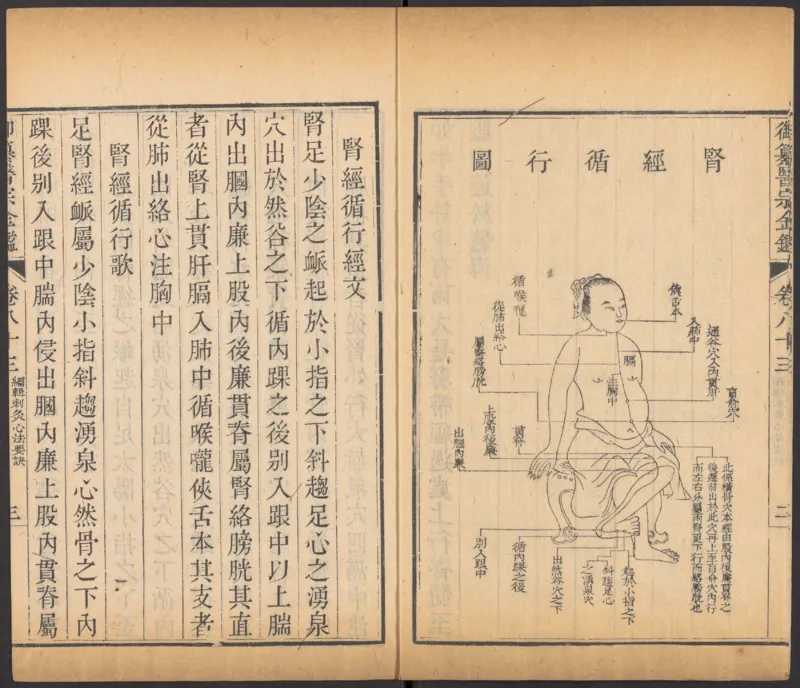 御纂醫宗金鑑
卷八十三
二
腎經循行圖
挾舌本
入肺中
循喉嚨
從肺出絡心
通谷穴入內貫肝
膈
屬腎絡膀胱
出胸中
肓俞穴
上股內後廉
貫脊
出膕內廉
此係橫骨穴本經由股內後廉貫脊之
後還前出於此穴再上至肓俞穴內行
而左右分屬兩腎更下行而絡膀胱也
起於小指之下
斜趨足心
之湧泉穴
出然谷穴之下
循內踝之後
別入跟中
腎經循行經文
腎足少陰之衇起於小指之下斜趨足心之湧泉
穴出於然谷之下循內踝之後別入跟中以上腨
內出膕內廉上股內後廉貫脊屬腎絡膀胱其直
者從腎上貫肝膈入肺中循喉嚨俠舌本其支者
從肺出絡心注胸中
腎經循行歌
足腎經衇屬少陰小指斜趨湧泉心然骨之下內
踝後別入跟中腨內侵出膕內廉上股內貫脊屬
御纂醫宗金鑑
卷八十三
編輯刺灸心法要訣
三